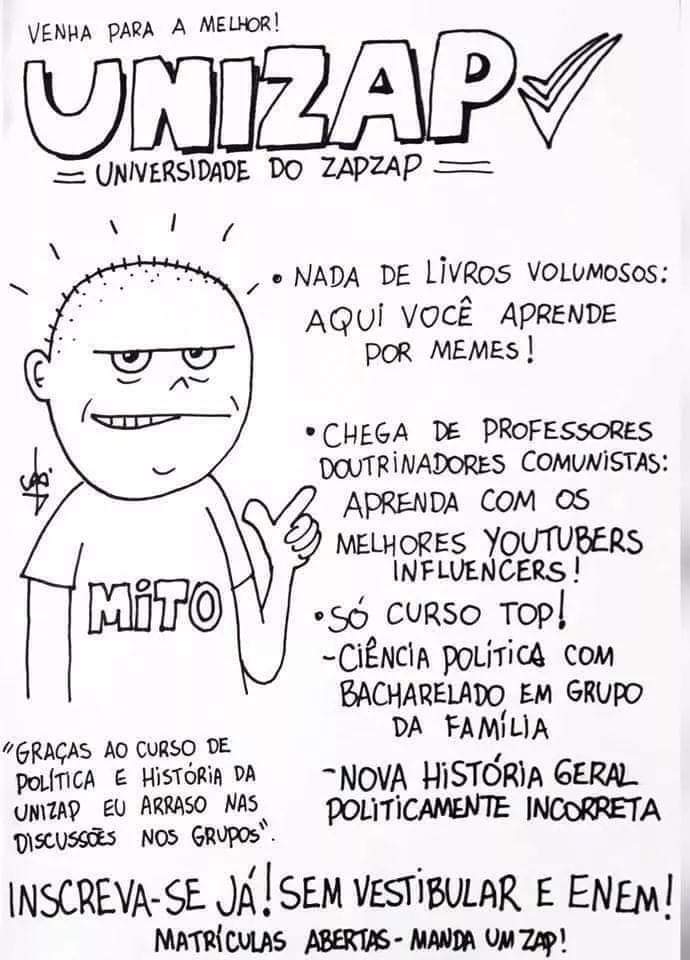 VENHA PARA A MELHOR!
UNIZAP
UNIVERSIDADE DO ZAPZAP
• NADA DE LIVROS VOLUMOSOS:
AQUI VOCÊ APRENDE
POR MEMES!
• CHEGA DE PROFESSORES
DOUTRINADORES COMUNISTAS:
APRENDA COM OS
MELHORES YOUTUBERS
INFLUENCERS!
• SÓ CURSO TOP!
- CIÊNCIA POLÍTICA COM
BACHARELADO EM GRUPO
DA FAMÍLIA
- NOVA HISTÓRIA GERAL
POLITICAMENTE INCORRETA
MITO
"GRAÇAS AO CURSO DE
POLÍTICA E HISTÓRIA DA
UNIZAP EU ARRASO NAS
DISCUSSÕES NOS GRUPOS".
INSCREVA-SE JÁ! SEM VESTIBULAR E ENEM!
MATRÍCULAS ABERTAS - MANDA UM ZAP!